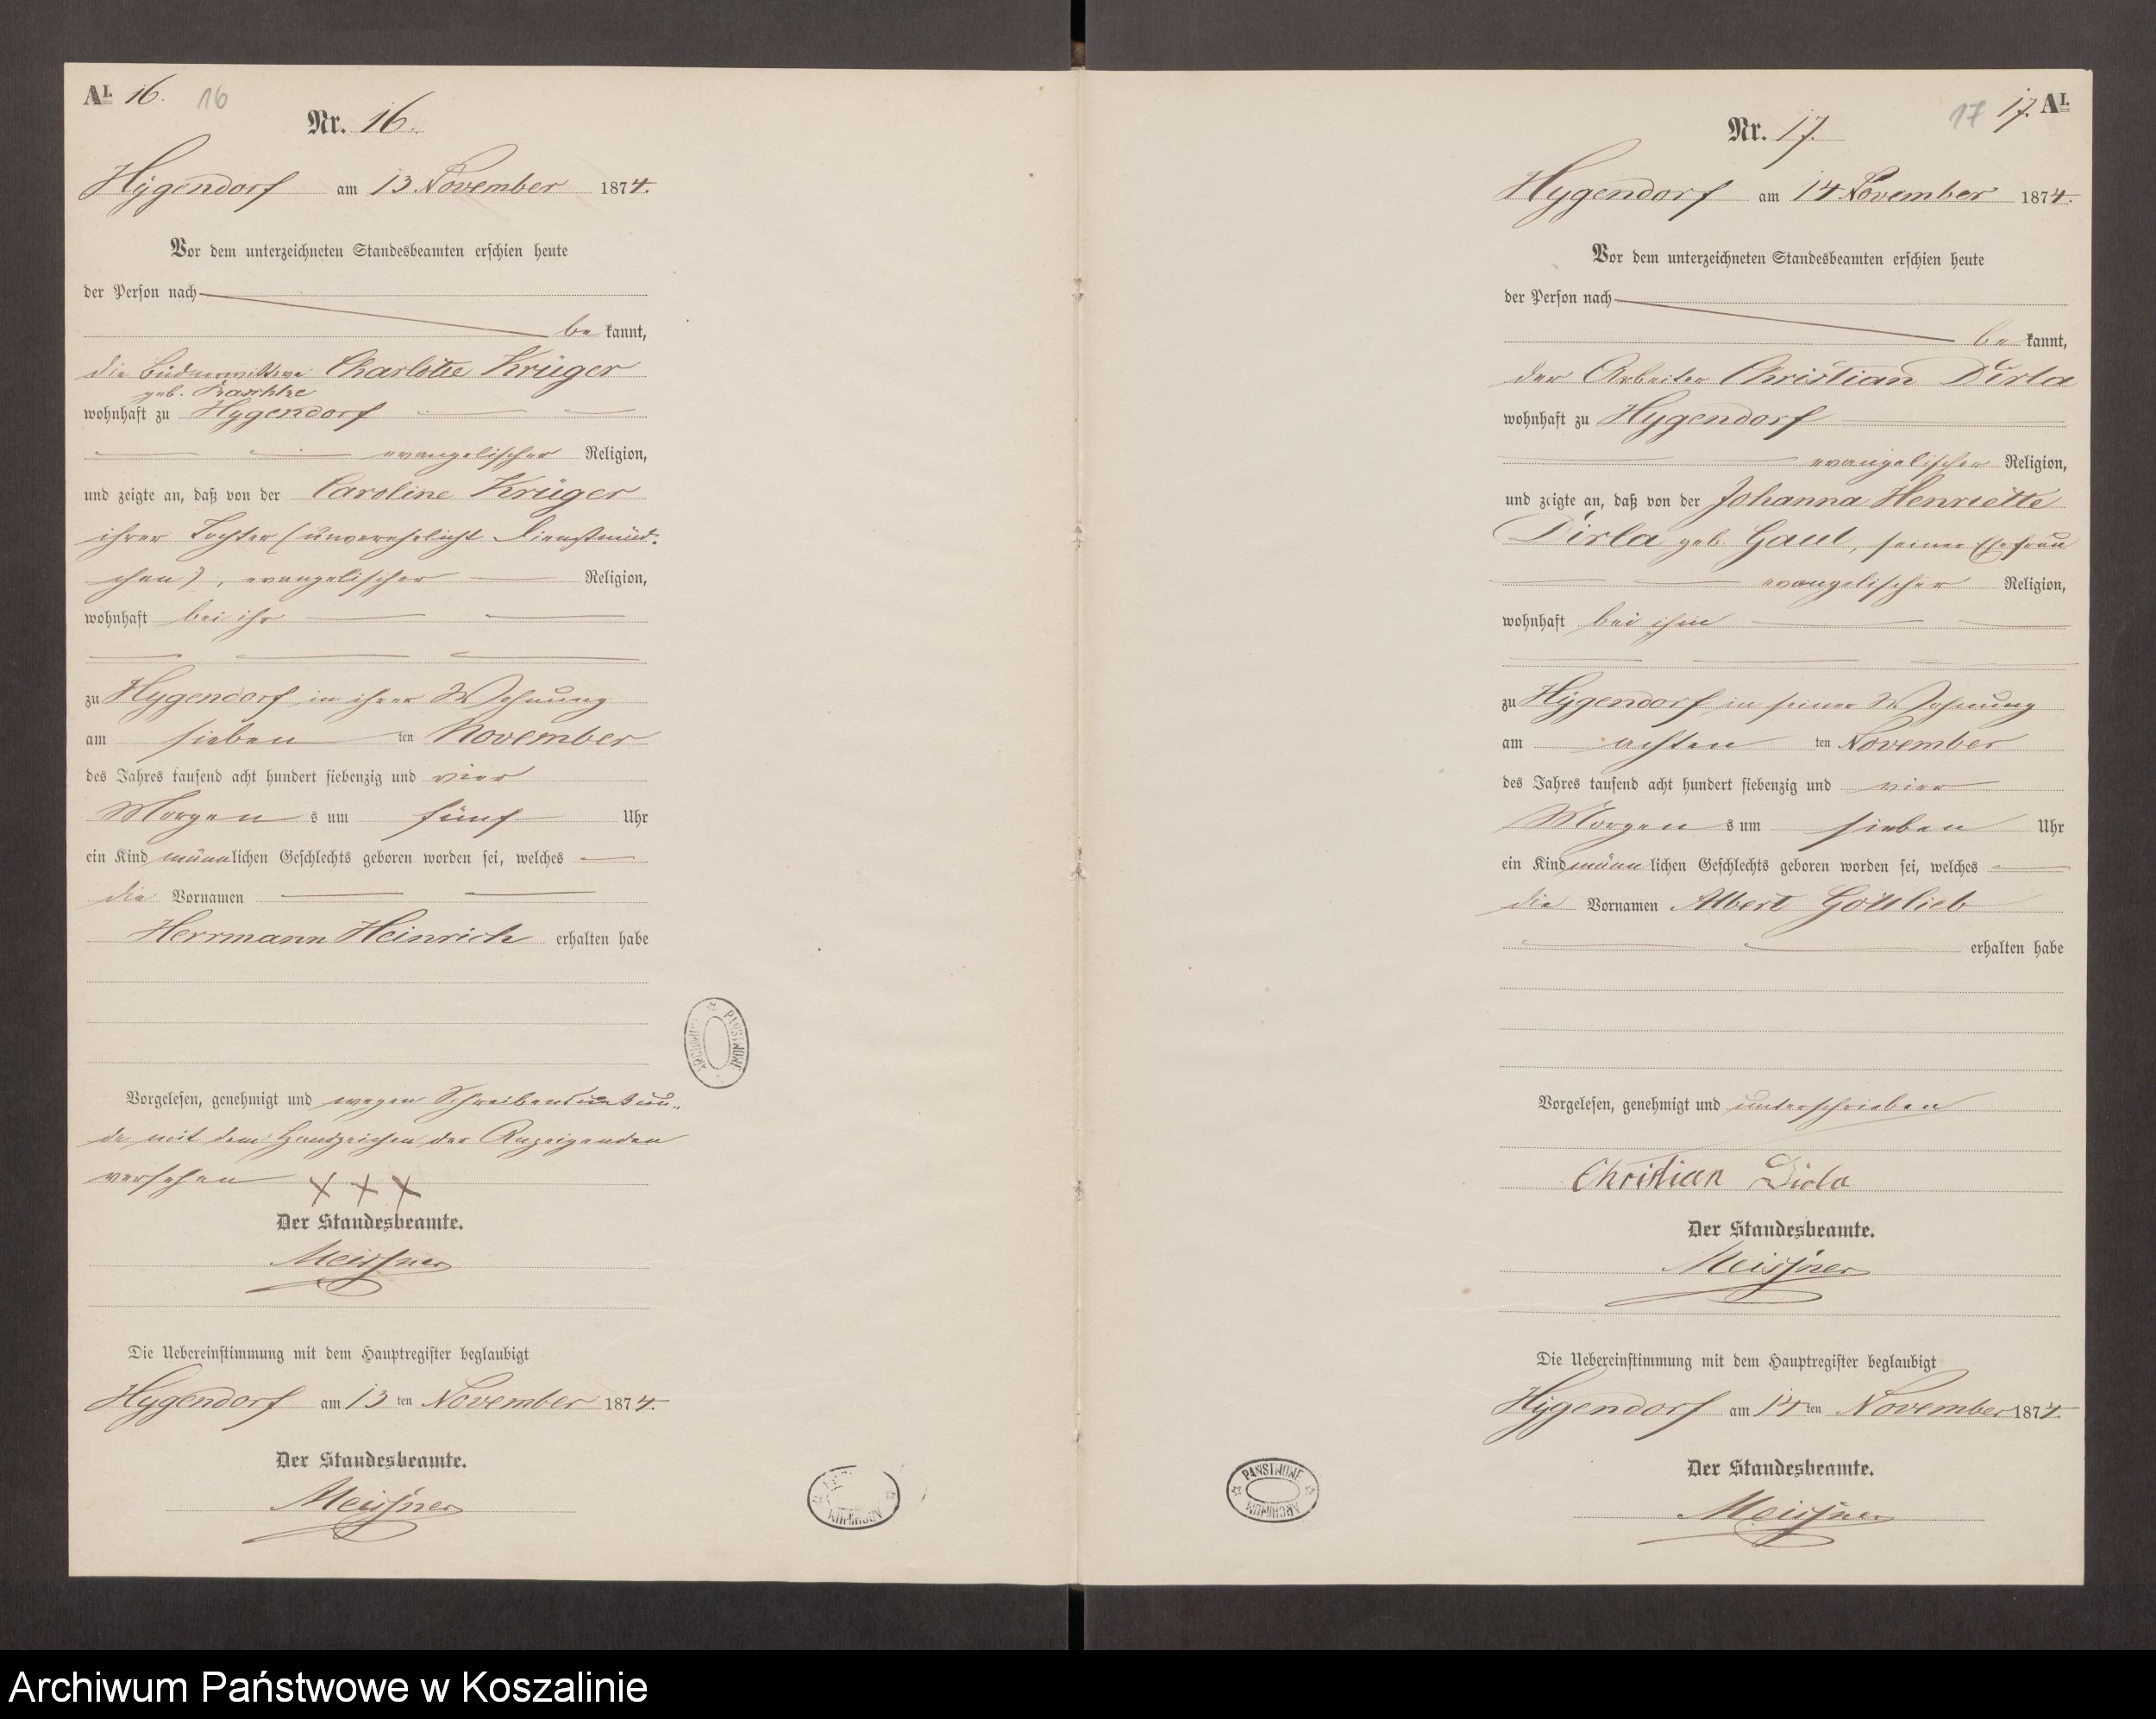 A I. 16. 16
Nr. 16.
Hygendorf am 13 November 1874.
Vor dem unterzeichneten Standesbeamten erschien heute
der Person nach
be kannt,
die Büdnerwittwe Charlotte Krüger
geb. Raschke
wohnhaft zu Hygendorf
evangelischer Religion,
und zeigte an, daß von der Caroline Krüger
ihrer Tochter (unverehelicht Dienstmäd-
chen), evangelischer Religion,
wohnhaft bei ihr
zu Hygendorf in ihrer Wohnung
am sieben ten November
des Jahres tausend acht hundert siebenzig und vier
Morgen s um fünf Uhr
ein Kind männlichen Geschlechts geboren worden sei, welches
die Vornamen
Herrmann Heinrich erhalten habe
Vorgelesen, genehmigt und wegen Schreibensunkun-
de mit dem Handzeichen der Anzeigenden
versehen XXX
Der Standesbeamte.
Meissner
Die Uebereinstimmung mit dem Hauptregister beglaubigt
Hygendorf am 13 ten November 1874.
Der Standesbeamte.
Meissner
ARCHIWUM PAŃSTWOWE
17 17. A I.
Nr. 17.
Hygendorf am 14 November 1874.
Vor dem unterzeichneten Standesbeamten erschien heute
der Person nach
be kannt,
der Arbeiter Christian Dirla
wohnhaft zu Hygendorf
evangelischer Religion,
und zeigte an, daß von der Johanna Henriette
Dirla geb. Gaul, seiner Ehefrau
evangelischer Religion,
wohnhaft bei ihm
zu Hygendorf in seiner Wohnung
am achten ten November
des Jahres tausend acht hundert siebenzig und vier
Morgen s um sieben Uhr
ein Kind männ lichen Geschlechts geboren worden sei, welches
die Vornamen Albert Gottlieb
erhalten habe
Vorgelesen, genehmigt und unterschrieben
Christian Dirla
Der Standesbeamte.
Meissner
Die Uebereinstimmung mit dem Hauptregister beglaubigt
Hygendorf am 14 ten November 1874.
Der Standesbeamte.
Meissner
PAŃSTWOWE ARCHIWUM
Archiwum Państwowe w Koszalinie